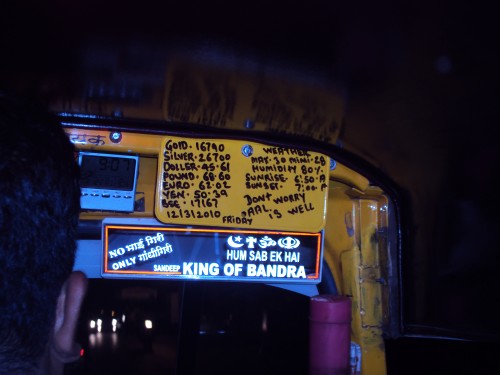 9:01
GOLD. 16790
SILVER. 26700
DOLLER. 45.61
POUND. 68.00
EURO. 62.02
YEN. 50.39
BSE: 17167
12/3/2010
FRIDAY
WEATHER
MAX. 30 MINI. 28
HUMIDITY 80%
SUNRISE. 6:50. A
SUNSET. 7:00. P
DON'T WORRY
AAL IS WELL
NO भाई गिरी
ONLY गांधीगिरी
HUM SAB EK HAI
SANDEEP KING OF BANDRA